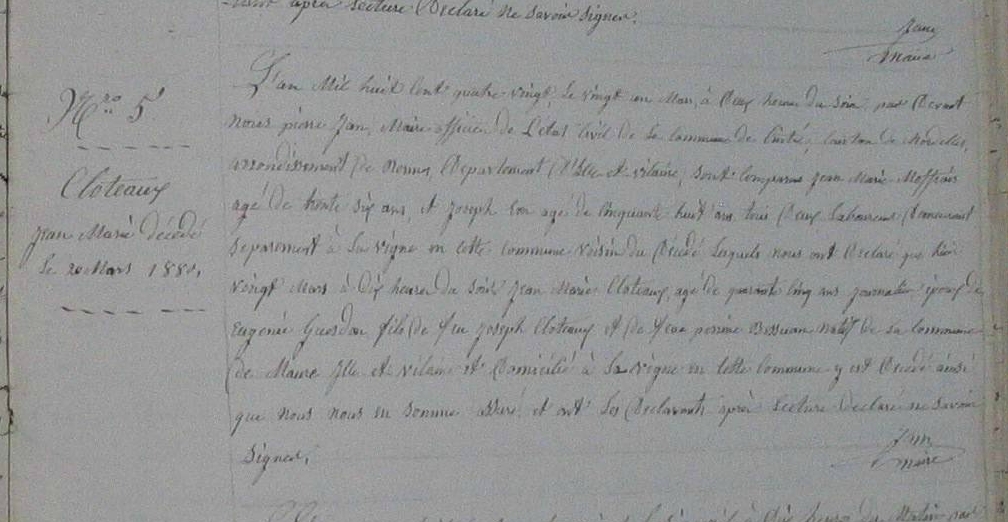 après lecture Déclaré ne savoir signer.
Jan
maire
Nro 5
Cloteaux
Jean Marie décédé
le 20 Mars 1880,
L'an Mil huit Cent quatre vingt, le vingt un Mars, à Deux heures du Soir, par Devant
Nous pierre Jan, Maire officier de L'état Civil de la commune de Cintré, Canton de Mordelles,
arrondissement de Rennes, Département D'Ille et vilaine, sont comparus Jean Marie Moffrais
agé de trente six ans, et Joseph agé de Cinquante huit ans tous Deux Laboureurs Demeurant
separement à La vigne en cette commune voisin du Décédé Lesquels nous ont Déclaré que hier
vingt Mars à Dix heures du Soir Jean Marie Cloteaux, agé de quarante Cinq ans journalier époux de
Eugenie Guerdon, fils de feu Joseph Cloteaux et de feue perrine natif de la Commune
de Maure Ille et vilaine et Domicilié à La vigne en cette Commune y est Décédé ainsi
que nous nous en somme assuré et ont Les Déclarants après Lecture Déclaré ne Savoir
Signer,
Jan
maire